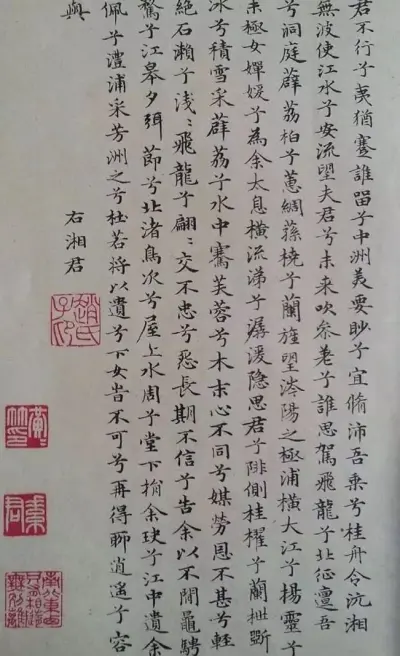 君不行兮夷猶蹇誰留兮中洲美要眇兮宜脩沛吾乘兮桂舟令沅湘
無波使江水兮安流望夫君兮未来吹参差兮誰思駕飛龍兮北征邅吾
兮洞庭薜荔柏兮蕙綢蓀橈兮蘭旌望涔陽之極浦橫大江兮揚靈兮
未極女嬋媛兮為余太息橫流涕兮潺湲隐思君兮陫側桂櫂兮蘭枻斲
冰兮積雪采薜荔兮水中騫芙蓉兮木末心不同兮媒勞恩不甚兮軽
絕石瀨兮淺〻飛龍兮翩〻交不忠兮怨長期不信兮告余以不閒鼂騁
騖兮江皋夕弭節兮北渚鳥次兮屋上水周兮堂下捐余玦兮江中遺余
佩兮澧浦采芳洲之兮杜若將以遺兮下女旹不可兮再得聊逍遥兮容
與
右湘君